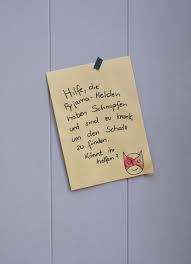 Hilfe, die
Pyjama-Helden
haben Schnupfen
und sind zu krank
um den Schatz
zu finden.
Könnt ihr
helfen?